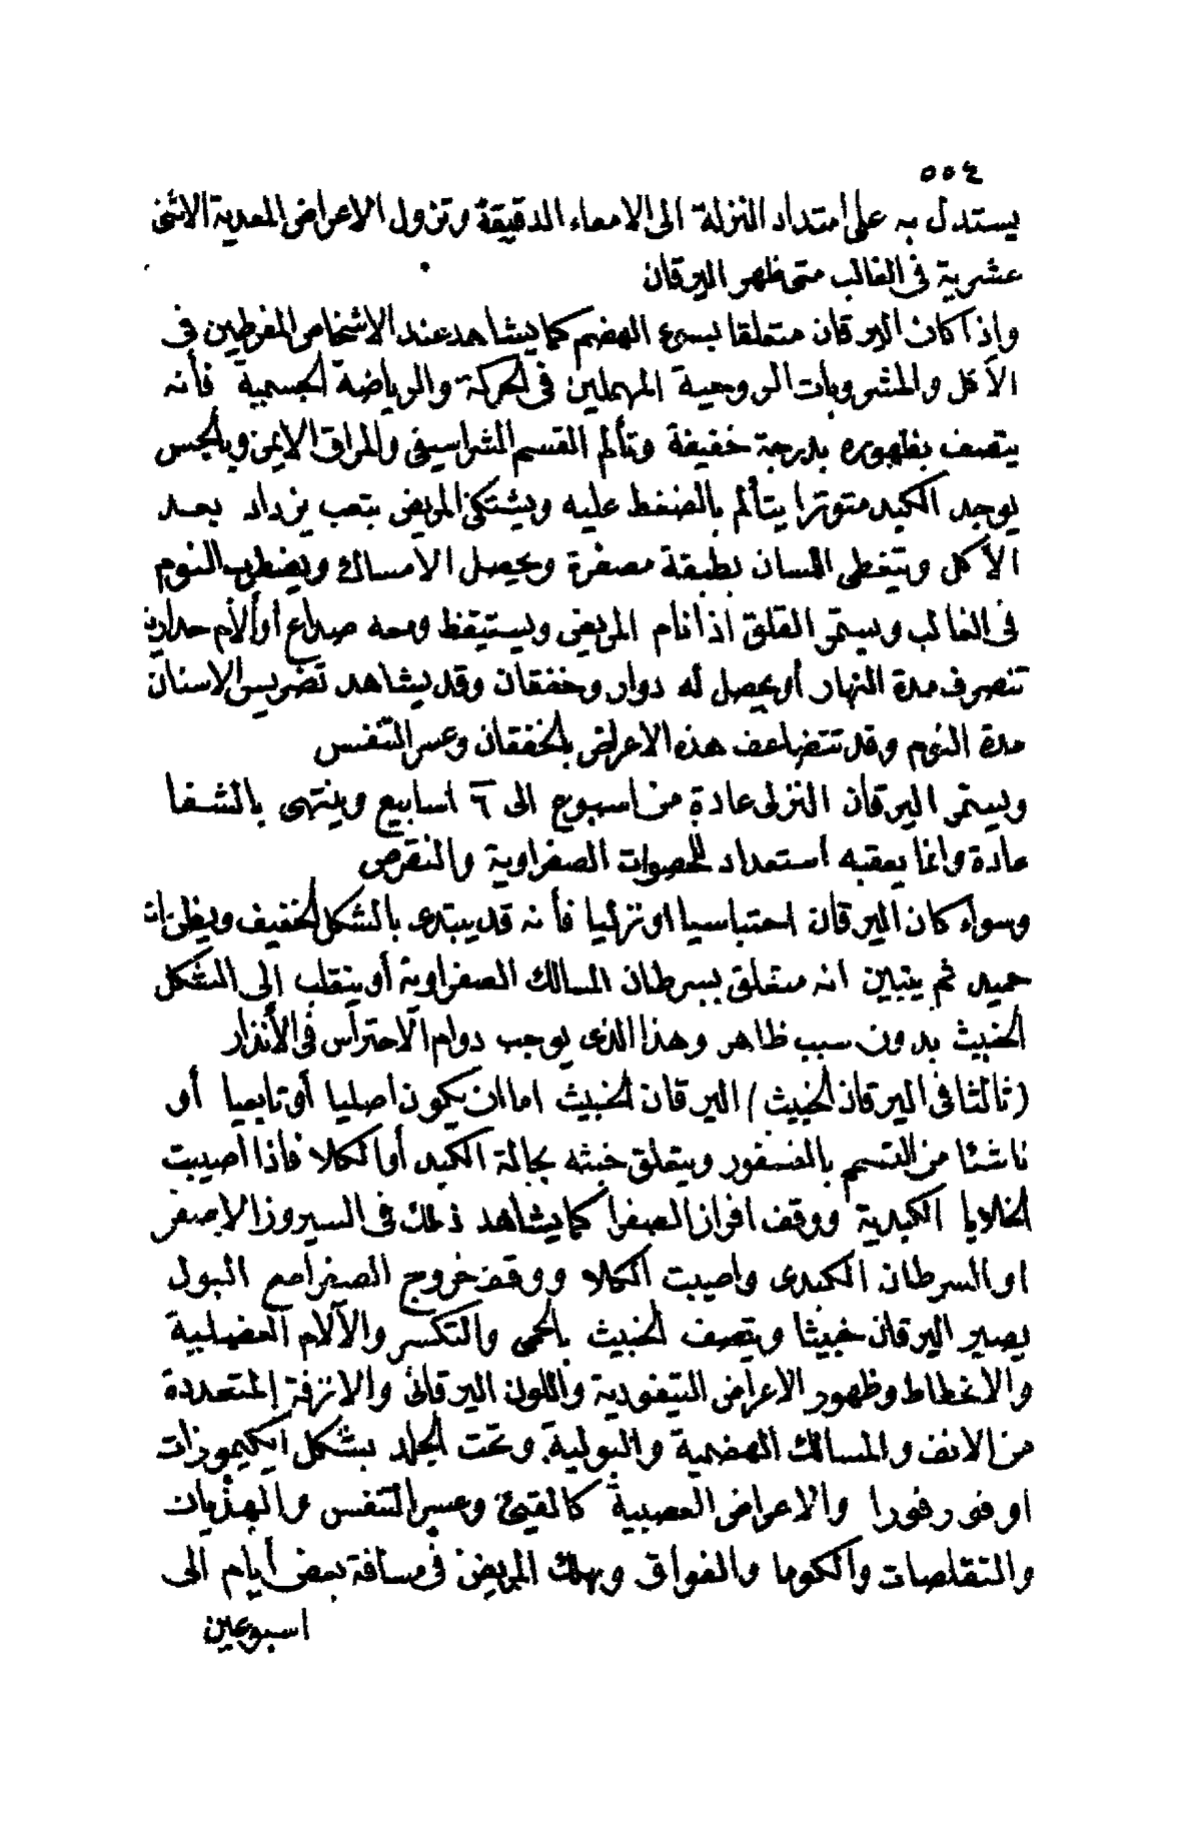 ٥٥٤
يستدل به على امتداد النزلة الى الامعاء الدقيقة وتزول الاعراض المعدية الاثنى
عشرية فى الغالب متى ظهر اليرقان
واذا كان اليرقان متعلقا بسوء الهضم كما يشاهد عند الاشخاص المفرطين فى
الأكل والمشروبات الروحية المهملين فى الحركة والرياضة الجسمية فأنه
يتصف بظهوره بدرجة خفيفة وتألم القسم الشراسيفى والمراق الايمن وبالجس
يوجد الكبد متوترا يتألم بالضغط عليه ويشتكى المريض بتعب يزداد بعد
الأكل وتتغطى اللسان بطبقة مصفرة ويحصل الامساك ويضطرب النوم
فى الغالب ويستمر القلق اذا نام المريض ويستيقظ ومعه صداع أوألام حدارية
تنصرف مدة النهار أو يحصل له دوار وخفقان وقد يشاهد تضريس الاسنان
مدة النوم وقد تتضاعف هذه الاعراض بالخفقان وعسر التنفس
ويستمر اليرقان النزلى عادة من اسبوع الى ٦ اسابيع وينتهى بالشفا
عادة وانما يعقبه استعداد للحصوات الصفراوية والنقرص
وسواء كان اليرقان احتباسيا او نزليا فأنه قد يبتدى بالشكل الخفيف ويظن انه
حميد ثم يتبين انه متعلق بسرطان المسالك الصفراوية أو ينقلب الى الشكل
الخبيث بدون سبب ظاهر وهذا الذى يوجب دوام الاحتراس فى الأنذار
(ثالثا فى اليرقان الخبيث) اليرقان الخبيث اما ان يكون اصليا أو تابعيا أو
ناشئا من التسمم بالفسفور ويتعلق خبثه بحالة الكبد أو الكلا فاذا اصيبت
الخلايا الكبدية ووقف افراز الصفرا كما يشاهد ذلك فى السيروز الاصفر
او السرطان الكبدى واصيبت الكلا ووقف خروج الصفرا مع البول
يصير اليرقان خبيثا ويتصف الخبيث بالحمى والتكسر والآلام العضلية
والانحطاط وظهور الاعراض التيفودية واللون اليرقانى والانزفة المتعددة
من الانف والمسالك الهضمية والبولية وتحت الجلد بشكل ايكيموزات
او فورفورا والاعراض العصبية كالقيئ وعسر التنفس والهذيان
والتقلصات والكوما والفواق ويهلك المريض فى مسافة بعض أيام الى
اسبوعين